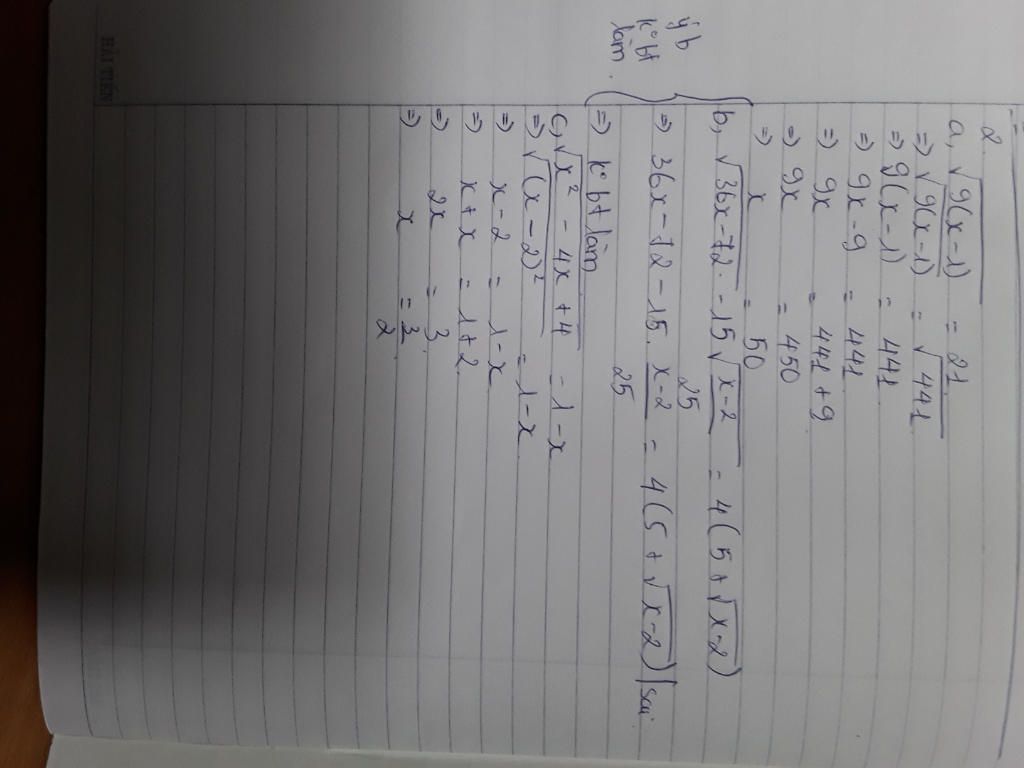 2.
a, √9(x-1) = 21
=> √9(x-1) = √441
=> 9(x-1) = 441
=> 9x-9 = 441
=> 9x = 441 + 9
=> 9x = 450
=> x = 50
b, √36x-72 - 15√(x-2)/25 = 4(5+√x-2)
=> 36x-72-15. (x-2)/25 = 4(5+√x-2) | sai
=> k° bt làm
ý b
k° bt
làm.
c, √x² - 4x + 4 = 1-x
=> √(x-2)² = 1-x
=> x-2 = 1-x
=> x+x = 1+2
=> 2x = 3
=> x = 3/2
HẢI TIẾN